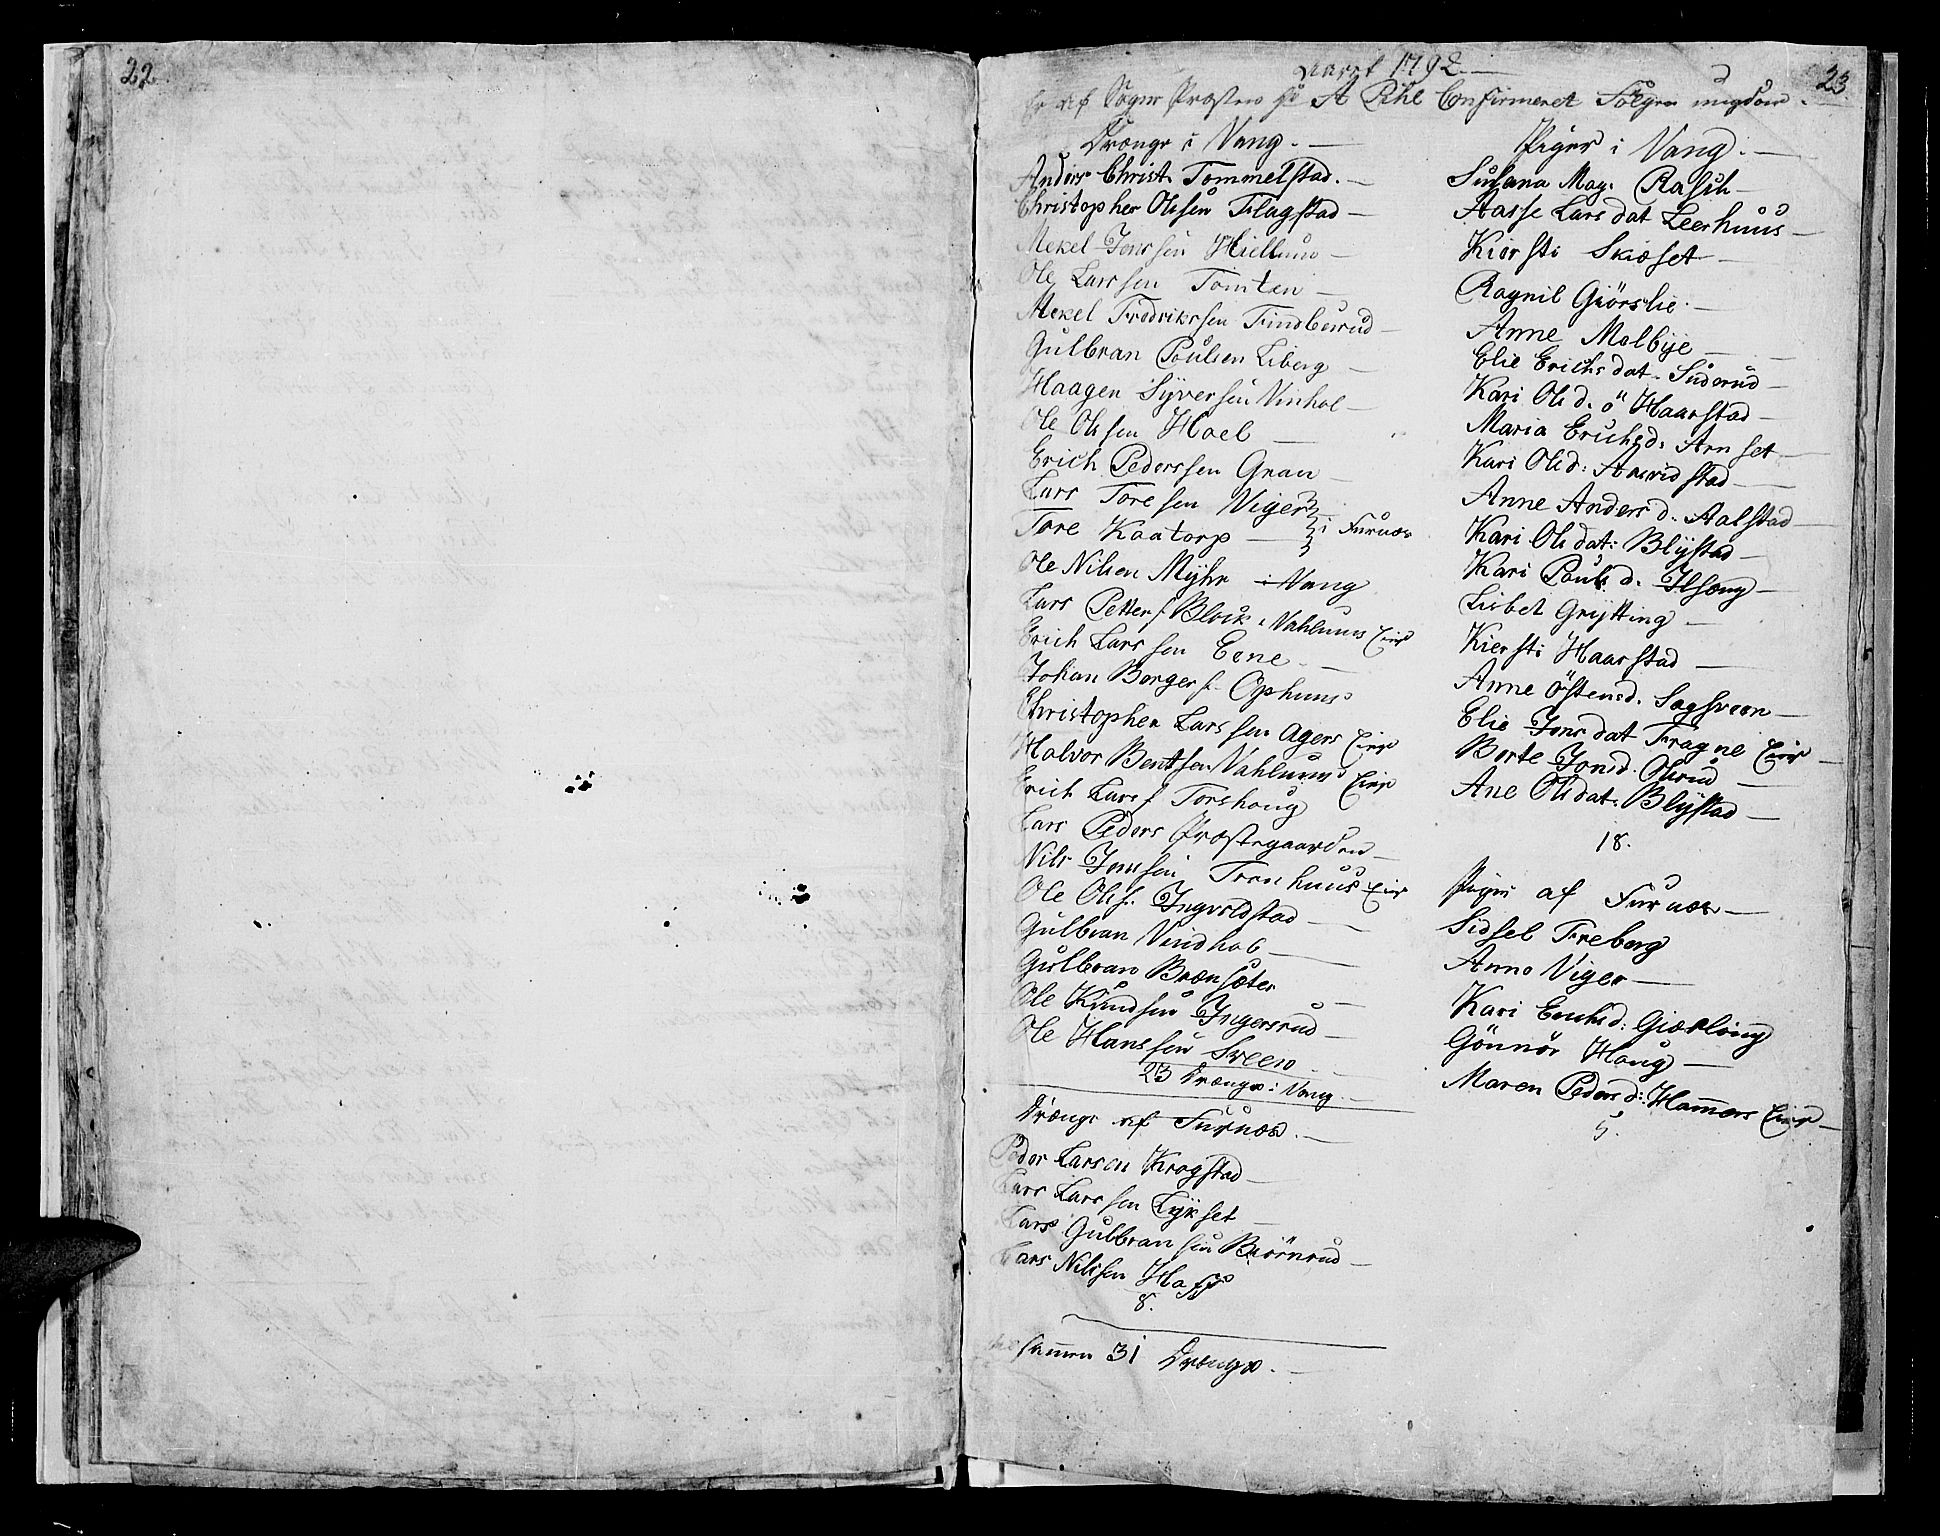 22
23
Aaret 1792.
Er af Sogne Præsten Hr A Pihl Confirmeret Følgen ungdom.
Drænge i Vang.
Anders Christ. Tommelstad.
Christopher Olssen Flagstad
Mekel Jenssen Hiellum
Ole Larssen Tomten
Mekel Fredrikssen Findberud
Gulbran Poulsen Liberg
Haagen Syversen Vinhol
Ole Olssen Hoel
Erich Pederssen Gran
Lars Toresen Viger
Tore Kaatorp i Furnæs
Ole Nilsen Myhr i Vang
Lars Petters. Block, Vahlums Eier
Erich Larssen Eene
Johan Borgers. Ophuus
Christopher Larssen Agers Eier
Halvor Bentsen Vahlums Eier
Erich Larss. Torshoug
Lars Peders Præstegaarden
Nils Jenssen Trenhuus Eier
Ole Olss. Ingvoldstad
Gulbran Vindhol
Gulbran Brænsæter
Ole Kundsen Ingersrud
Ole Hanssen Sveen
23 Drænge i Vang.
Drænge af Furnæs.
Peder Larsen Kragstad
Lars Larssen Lykset
Lars Gulbransen Biørnrud
Lars Nilssen Haff
8.
sammen 31 Drænge.
Piger i Vang.
Susana Mag. Rasch
Aasse Larsdat Leerhuus
Kiersti Skiøset
Ragnil Giørslie
Anne Melbye
Elie Erichsdat. Suderud
Kari Olsd. ö Haarstad
Maria Erichsd. Arnset
Kari Olsd: Arvidstad
Anne Andersd. Aalstad
Kari Olsdat: Blystad
Kari Poulsd. Ilseng
Lisbet Grytting
Kiersti Haarstad
Anne Östensd. Sagsveen
Elie Jensdat Fragne Eier
Berte Jonsd. Olsrud
Ane Olsdat. Blystad
18.
Piger af Furnæs
Sidsel Freberg
Anne Viger
Kari Erichsd: Giærlöug
Gönnör Houg
Maren Pedersd: Hamers Eier
5.